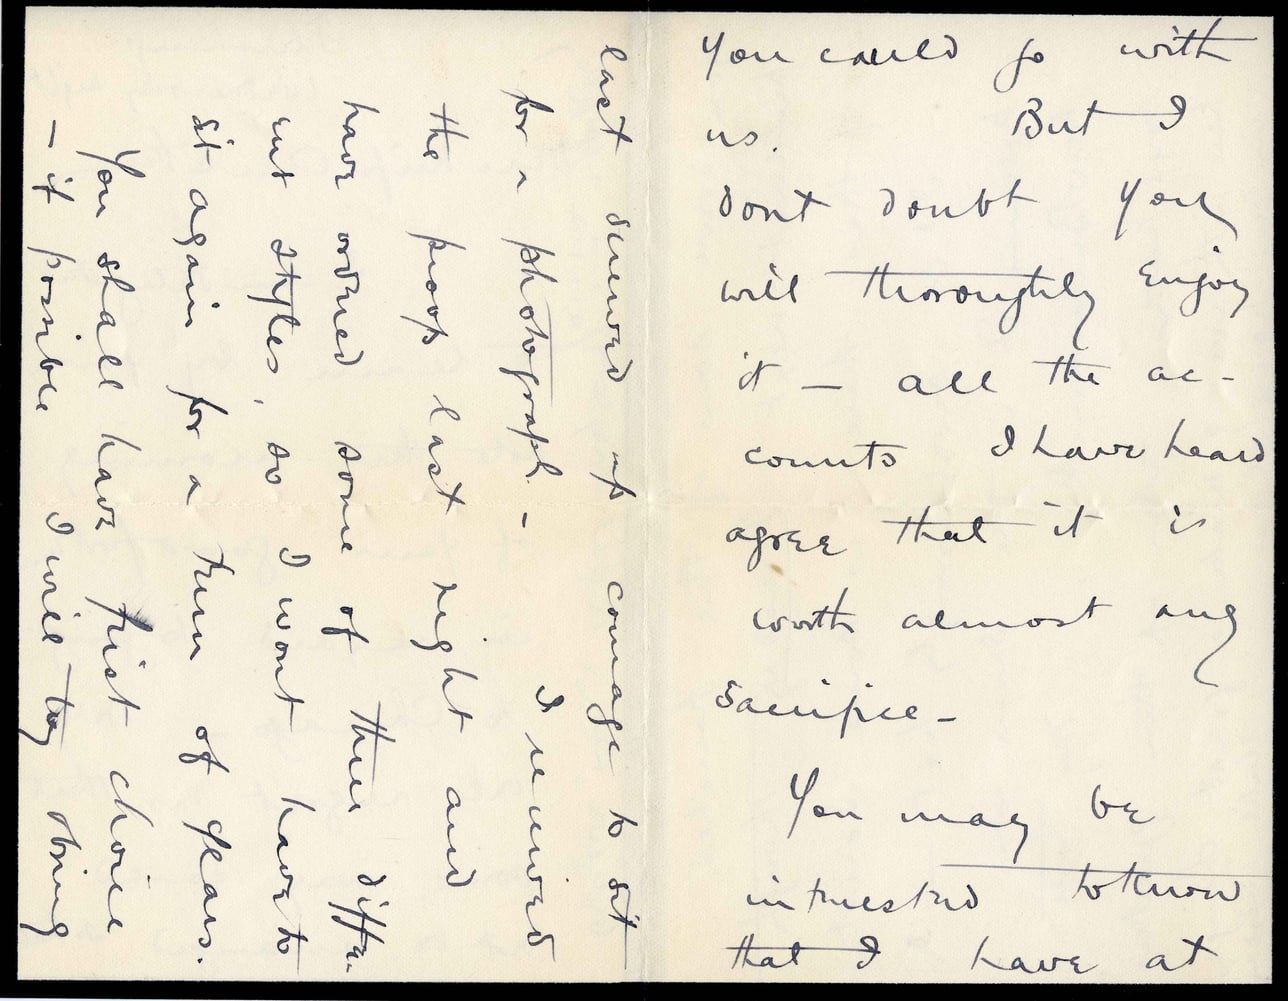 You could go with
us. But I
dont doubt you
will thoroughly enjoy
it — all the ac-
counts I have heard
agree that it is
worth almost any
sacrifice —
You may be
interested to know
that I have at
last screwed up courage to sit
for a photograph. — I received
the proofs last night and
have ordered some of three diffe-
rent styles, so I wont have to
sit again for a term of years.
You shall have first choice
— if possible I will try bring